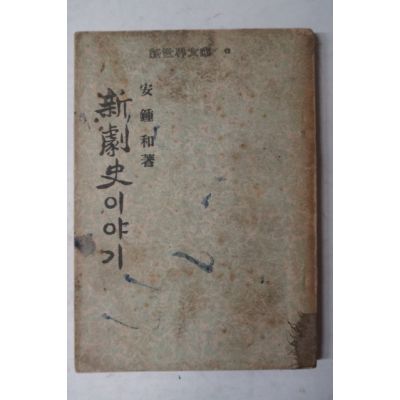 安鍾和著
新劇史이야기